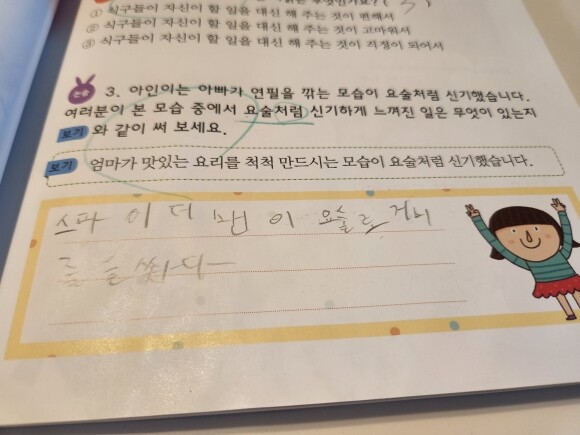 ① 식구들이 자신이 할 일을 대신 해 주는 것이 편해서
② 식구들이 자신이 할 일을 대신 해 주는 것이 고마워서
③ 식구들이 자신이 할 일을 대신 해 주는 것이 걱정이 되어서
논술
3. 아인이는 아빠가 연필을 깎는 모습이 요술처럼 신기했습니다.
여러분이 본 모습 중에서 요술처럼 신기하게 느껴진 일은 무엇이 있는지
보기 와 같이 써 보세요.
보기 엄마가 맛있는 요리를 척척 만드시는 모습이 요술처럼 신기했습니다.
스파이더맨이 요술로 거미
를 쐈다